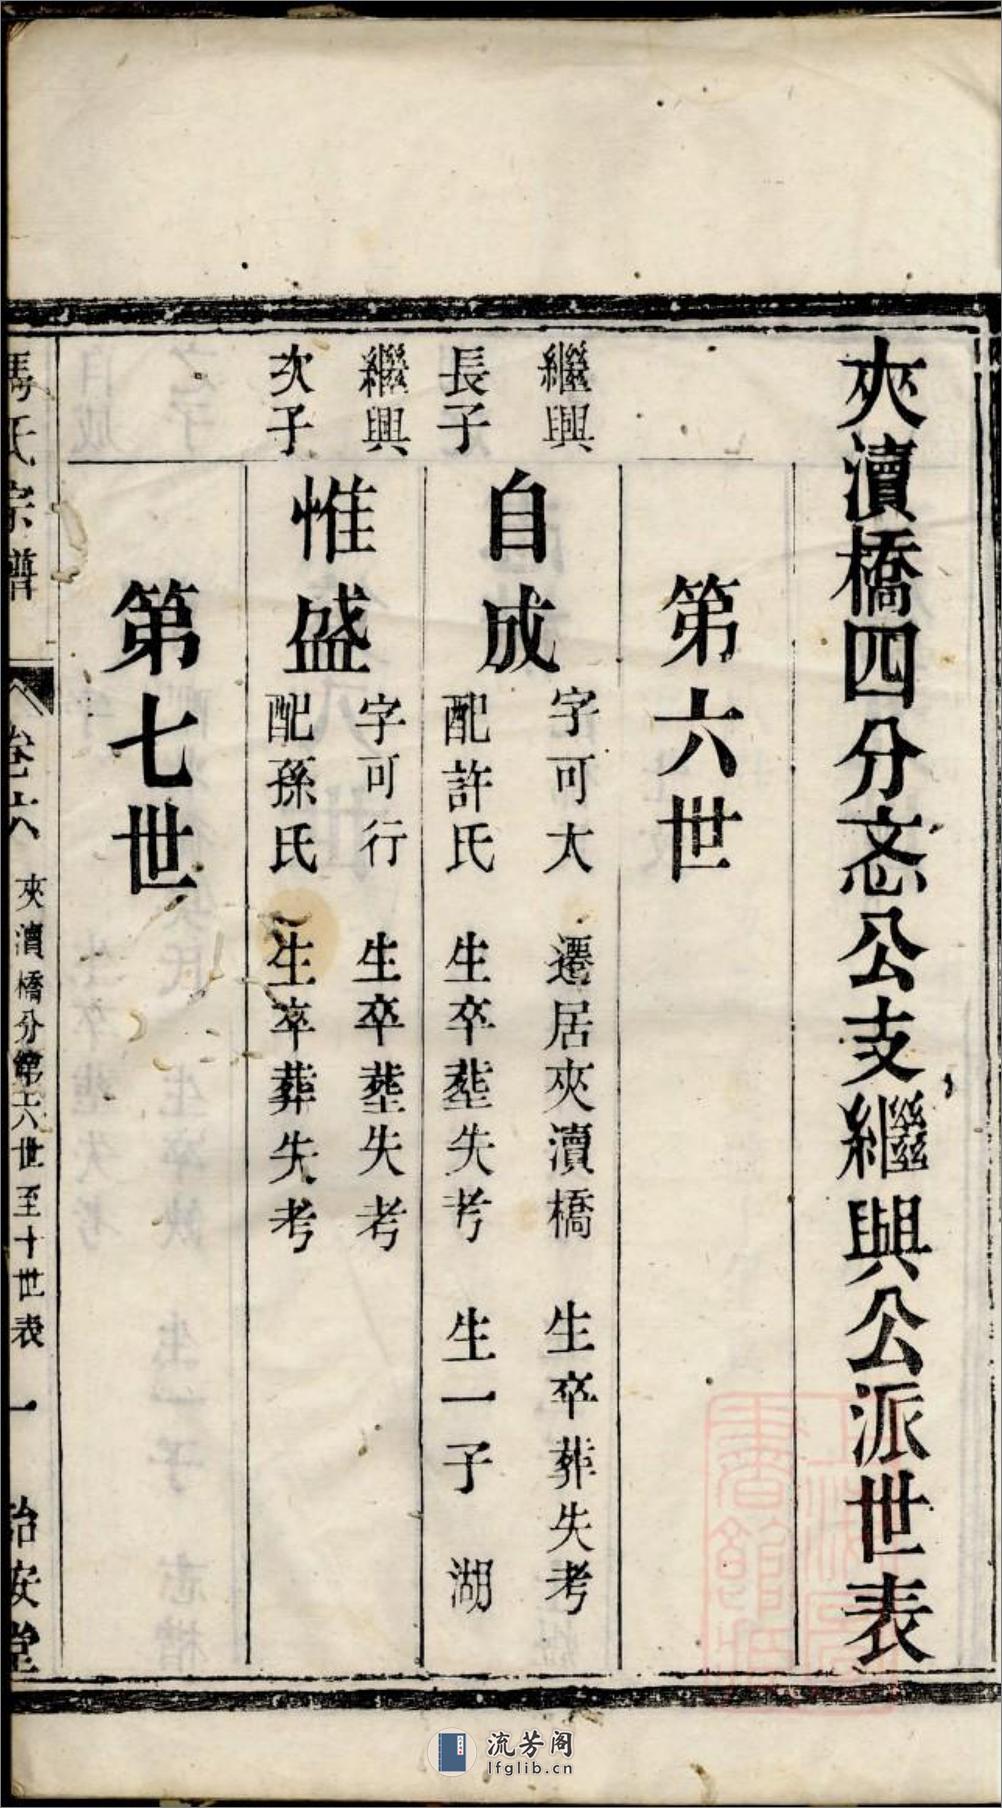 夾瀆橋四分忞公支繼興公派世表
第六世
繼興
長子
自成
字可大 遷居夾瀆橋 生卒葬失考
配許氏 生卒塟失考 生一子 湖
繼興
次子
惟盛
字可行 生卒塟失考
配孫氏 生卒葬失考
第七世
氏宗譜 卷六 夾瀆橋分第六世至十世表 一 治安堂
流芳阁
lfglib.cn